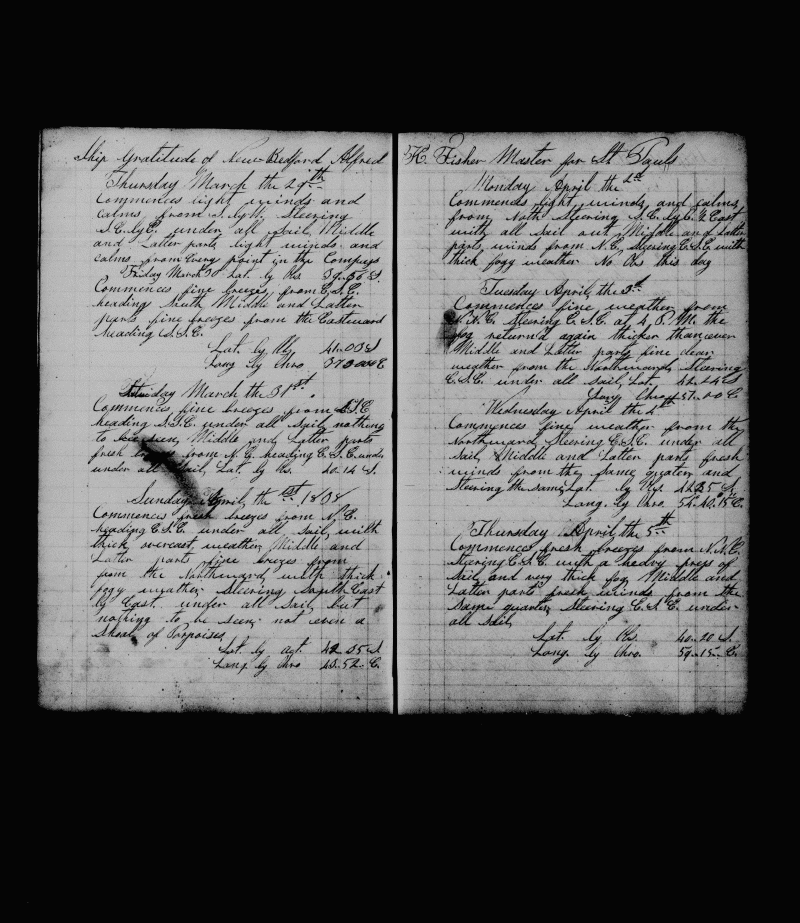 Ship Gratitude of New Bedford Alfred
Thursday March the 29th
Commences light winds and
calms from S. by W. Steering
S.E. by E. under all Sail, Middle
and Latter parts light winds and
calms from every point in the Compass
Friday March 30 Lat. by Obs. 39..36 S.
Commences fine breezes from E.S.E.
heading South Middle and Latter
parts fine breezes from the Eastward
heading S.S.E.
Lat. by Obs. 41..00 S
Long by Chro. 37 00 00 E
day March the 31st
Commences fine breezes from E.S.E
heading S.S.E. under all Sail, nothing
to be seen, Middle and Latter parts
fresh breezes from N.E. heading E.S.E. under
under all Sail, Lat. by Obs. 40..14 S.
Sunday April the 1st 18
Commences fresh breezes from N.E.
heading E.S.E. under all Sail, with
thick overcast weather, Middle and
Latter parts fine breezes from
from the Northward, with thick
foggy weather Steering South East
by East. under all Sail, but
nothing to be seen not even a
Shoal of Porpoises,
Lat. by act. 42..05 S
Long. by Chro 52.. E.
K. Fisher Master for St Pauls
Monday April the 2d
Commences light winds and calms
from North Steering S.E. by E. ½ East
with all Sail out Middle and Latter
parts, winds from N.E. Steering E.S.E. with
thick fogy weather No Obs this day
Tuesday April, the 3d
Commences fine weather from
N.N.E. Steering E.S.E. at 4 P.M. the
fog return'd again thicker than ever
Middle and Latter parts fine clear
weather from the Northward Steering
E.S.E. under all Sail, Lat. 42..24 S
Long Chro 51..00 E.
Wednesday April the 4th
Commences fine weather from the
Northward, Steering E.S.E. under all
Sail, Middle and Latter parts fresh
winds from the Same quater and
Steering the Same, Lat. by Obs. 41 25 S.
Long. by Chro. 54..40..15 E.
Thursday April the 5th
Commences fresh breezes from N.N.E.
Steering E.S.E. with a heavy press of
Sail, and very thick fog Middle and
Latter parts fresh winds from the
Same quarter, Steering E.S.E. under
all Sail,
Lat. by Obs. 40..20 S.
Long. by Chro. 59..15.. E.